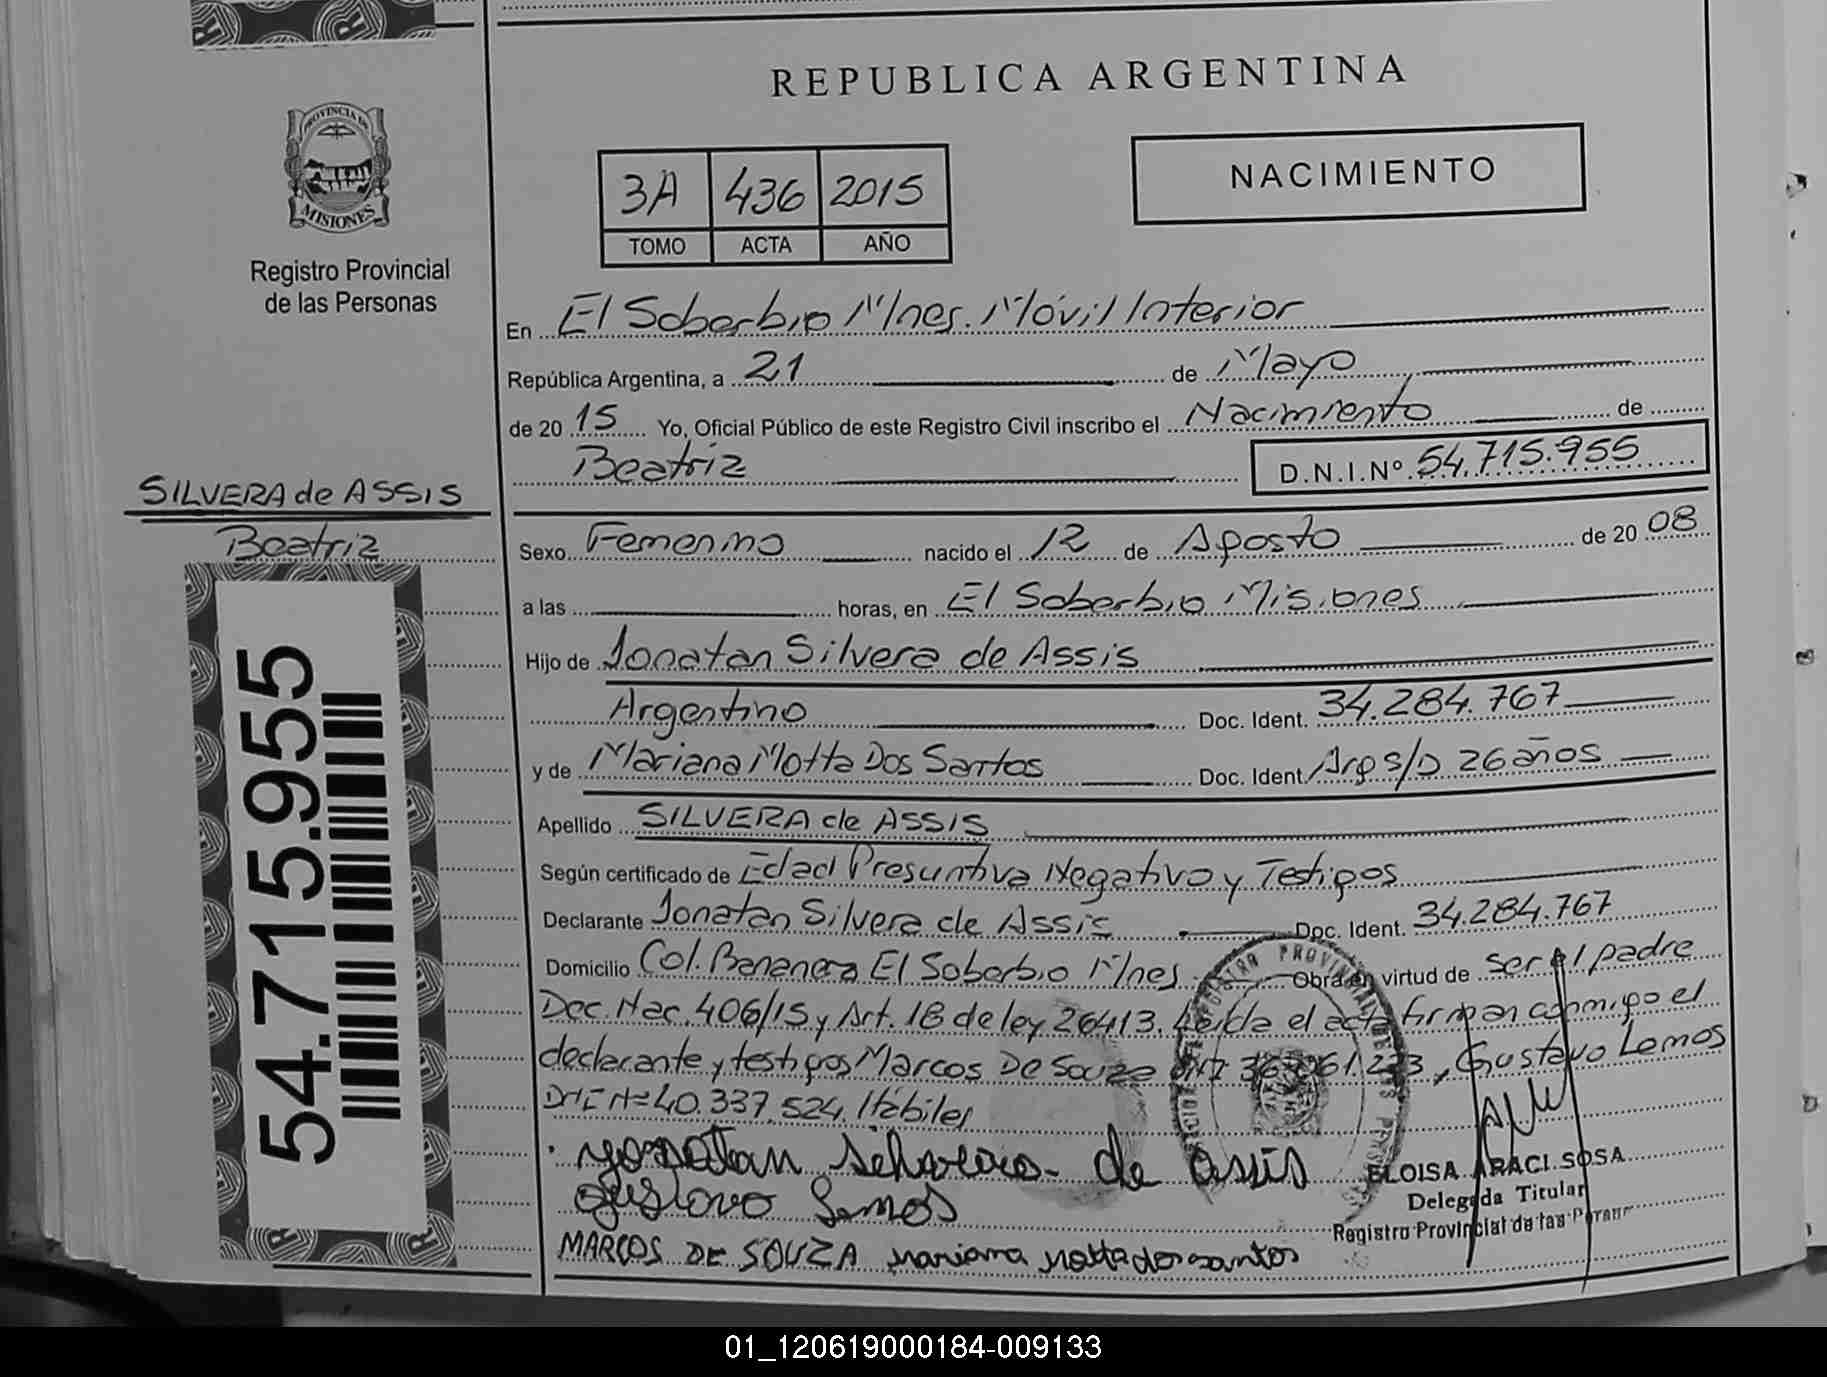 REPUBLICA ARGENTINA
PROVINCIA DE
MISIONES
Registro Provincial
de las Personas
3A 436 2015
TOMO ACTA AÑO
NACIMIENTO
En El Soberbio Mnes. Móvil Interior
República Argentina, a 21 de Mayo
de 20 15 Yo, Oficial Público de este Registro Civil inscribo el Nacimiento de
Beatriz D.N.I.Nº 54.715.955
SILVERA de ASSIS
Beatriz
54.715.955
Sexo Femenino nacido el 12 de Agosto de 20 08
a las horas, en El Soberbio Misiones
Hijo de Jonatan Silvera de Assis
Argentino Doc. Ident. 34.284.767
y de Mariana Motta Dos Santos Doc. Ident. Arg s/D 26 años
Apellido SILVERA de ASSIS
Según certificado de Edad Presuntiva Negativo y Testigos
Declarante Jonatan Silvera de Assis Doc. Ident. 34.284.767
Domicilio Col. Bananera El Soberbio Mnes. Obra en virtud de ser el padre
Dec. Nac. 406/15 y Art. 18 de ley 26413. Leída el acta firman conmigo el
declarante y testigos Marcos De Souza , Gustavo Lemos
DNI Nº 40.337.524. Hábiles
de assis
Gustavo Lemos
ELOISA ARACI SOSA
Delegada Titular
Registro Provincial de las
MARCOS DE SOUZA mariana motta dos santos
01_120619000184-009133